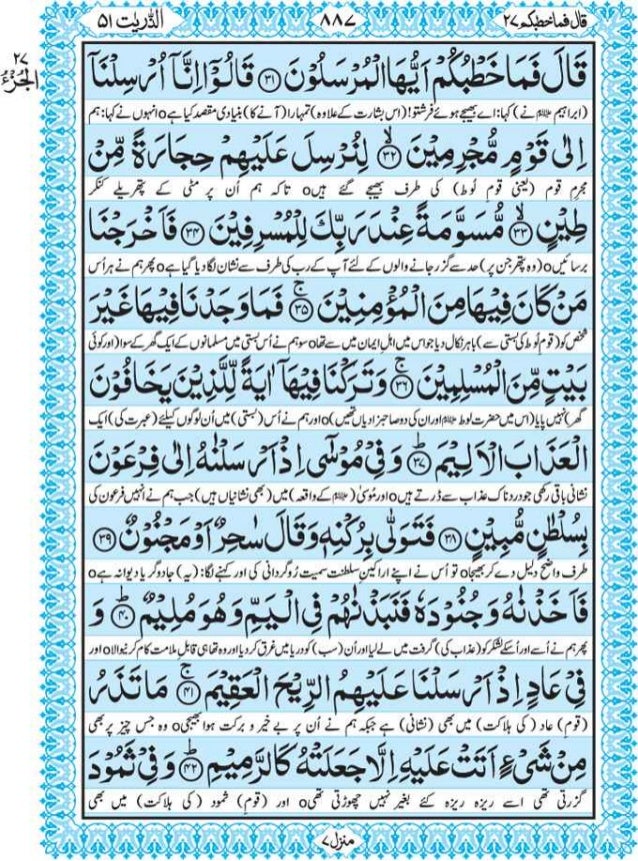 قال فما خطبكم ۲۷
۸۸۷
الذّٰریٰت ۵۱
۲۷
الجزء
قَالَ فَمَا خَطْبُكُمْ اَيُّهَا الْمُرْسَلُوْنَ ﴿۳۱﴾ قَالُوْۤا اِنَّاۤ اُرْسِلْنَاۤ
(ابراہیم ﷺ نے) کہا: اے بھیجے ہوئے فرشتو! (اس بشارت کے علاوہ) تمہارا (آنے کا) بنیادی مقصد کیا ہے o انہوں نے کہا: ہم
اِلٰى قَوْمٍ مُّجْرِمِيْنَ ﴿۳۲﴾ۙ لِنُرْسِلَ عَلَيْهِمْ حِجَارَةً مِّنْ
مجرم قوم (یعنی قومِ لُوط) کی طرف بھیجے گئے ہیں o تاکہ ہم اُن پر مٹی کے پتھریلے کنکر
طِيْنٍ ﴿۳۳﴾ۙ مُّسَوَّمَةً عِنْدَ رَبِّكَ لِلْمُسْرِفِيْنَ ﴿۳۴﴾ فَاَخْرَجْنَا
برسائیں o (وہ پتھر جن پر) حد سے گزر جانے والوں کے لئے آپ کے رب کی طرف سے نشان لگا دیا گیا ہے o پھر ہم نے ہر اُس
مَنْ كَانَ فِيْهَا مِنَ الْمُؤْمِنِيْنَ ﴿۳۵﴾ۚ فَمَا وَجَدْنَا فِيْهَا غَيْرَ
شخص کو (قومِ لُوط کی بستی سے) باہر نکال دیا جو اس میں اہلِ ایمان میں سے تھا o سو ہم نے اُس بستی میں مسلمانوں کے ایک گھر کے سوا (اور کوئی
بَيْتٍ مِّنَ الْمُسْلِمِيْنَ ﴿۳۶﴾ۚ وَتَرَكْنَا فِيْهَاۤ اٰيَةً لِّلَّذِيْنَ يَخَافُوْنَ
گھر) نہیں پایا (اس میں حضرت لوط ﷺ اور ان کی دو صاحبزادیاں تھیں) o اور ہم نے اُس (بستی) میں اُن لوگوں کیلئے (عبرت کی) ایک
الْعَذَابَ الْاَلِيْمَ ﴿۳۷﴾ؕ وَفِيْ مُوْسٰۤى اِذْ اَرْسَلْنٰهُ اِلٰى فِرْعَوْنَ
نشانی باقی رکھی جو دردناک عذاب سے ڈرتے ہیں o اور مُوسیٰ (ﷺ کے واقعہ) میں (بھی نشانیاں ہیں) جب ہم نے انہیں فرعون کی
بِسُلْطٰنٍ مُّبِيْنٍ ﴿۳۸﴾ فَتَوَلّٰى بِرُكْنِهٖ وَقَالَ سٰحِرٌ اَوْ مَجْنُوْنٌ ﴿۳۹﴾
طرف واضح دلیل دے کر بھیجا o تو اُس نے اپنے اراکینِ سلطنت سمیت رُوگردانی کی اور کہنے لگا: (یہ) جادوگر یا دیوانہ ہے o
فَاَخَذْنٰهُ وَجُنُوْدَهٗ فَنَبَذْنٰهُمْ فِي الْيَمِّ وَهُوَ مُلِيْمٌ ﴿۴۰﴾ؕ وَ
پھر ہم نے اُسے اور اُسکے لشکر کو (عذاب کی) گرفت میں لے لیا اور اُن (سب) کو دریا میں غرق کر دیا اور وہ تھا ہی قابلِ ملامت کام کرنیوالا o اور
فِيْ عَادٍ اِذْ اَرْسَلْنَا عَلَيْهِمُ الرِّيْحَ الْعَقِيْمَ ﴿۴۱﴾ۚ مَا تَذَرُ
(قومِ) عاد (کی ہلاکت) میں بھی (نشانی) ہے جبکہ ہم نے اُن پر بے خیر و برکت ہوا بھیجی o وہ جس چیز پر بھی
مِنْ شَيْءٍ اَتَتْ عَلَيْهِ اِلَّا جَعَلَتْهُ كَالرَّمِيْمِ ﴿۴۲﴾ؕ وَفِيْ ثَمُوْدَ
گزرتی تھی اسے ریزہ ریزہ کئے بغیر نہیں چھوڑتی تھی o اور (قومِ) ثمود (کی ہلاکت) میں بھی
منزل ۷